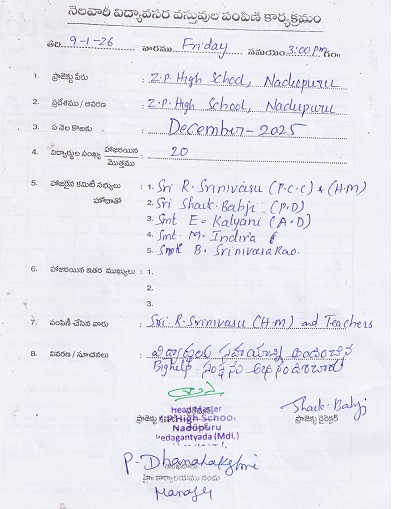 నెలవారీ విద్యావసర వస్తువుల పంపిణీ కార్యక్రమం
తేది 9-1-26 వారము Friday సమయం 3:00 pm గం॥
1. ప్రాజెక్టు పేరు : Z.P. High School, Nadupuru
2. ప్రదేశము / ఆవరణ : Z.P. High School, Nadupuru
3. ఏ నెల కొఱకు : December-2025
4. విద్యార్థుల సంఖ్య హాజరయిన / మొత్తము : 20
5. హాజరైన కమిటీ సభ్యులు : 1. Sri R. Srinivasu (P.C.C) & (H.M)
హోదాతో 2. Sri Shaik Babji (P.D)
3. Smt E. Kalyani (A.D)
4. Smt. M. Indira
5. B. Srinivasa Rao.
6. హాజరయిన ఇతర ముఖ్యులు : 1.
2.
3.
7. పంపిణీ చేసిన వారు : Sri. R. Srinivasu (H.M) and Teachers
8. వివరణ / సూచనలు : విద్యార్థులకు సహాయాన్ని అందించిన
Bighelp సంస్థను
Headmaster
Z.P.High School
Nadupuru
Pedagantyada (Mdl.)
Shaik Babji
ప్రాజెక్టు డైరెక్టర్
P. Dhanalakshmi
హై కార్యాలయము నందు
Manager